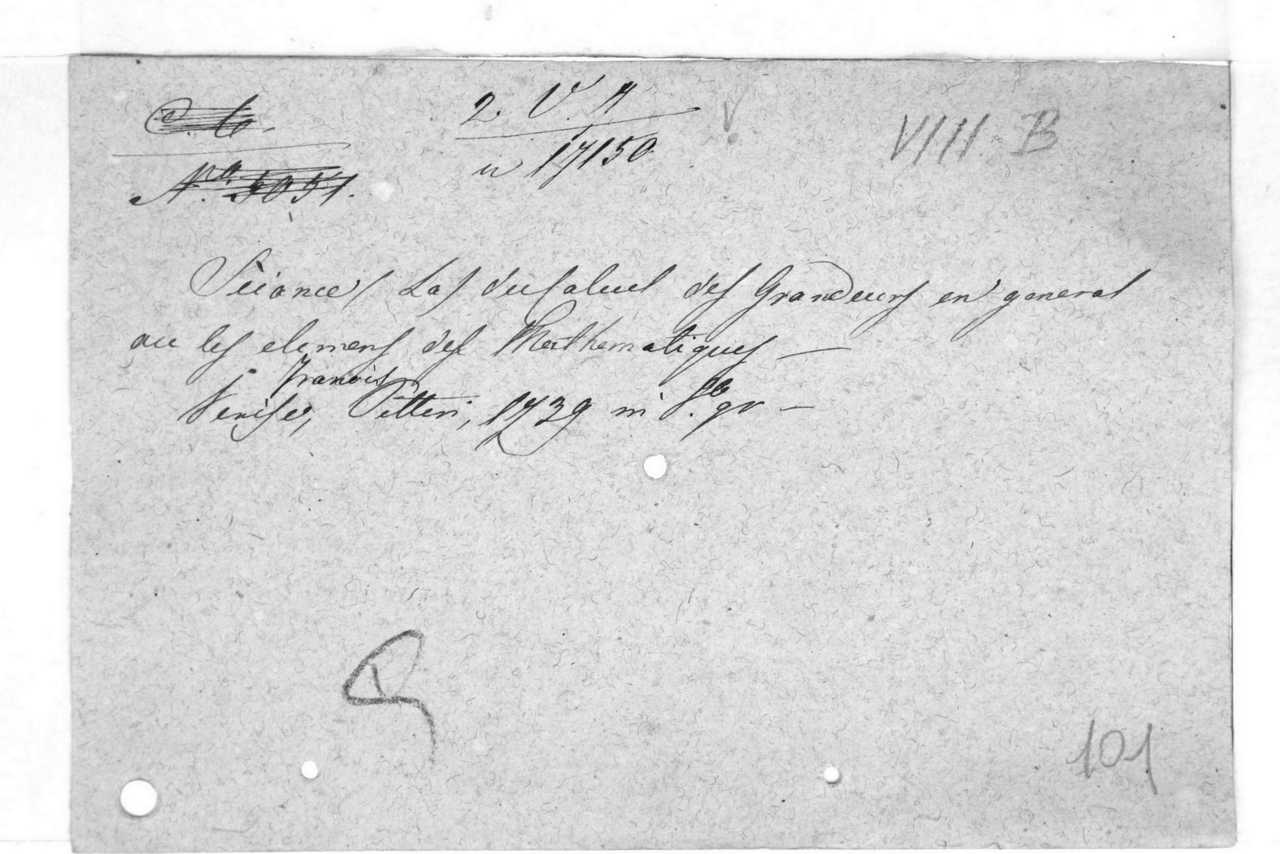 C. b.
2. V. A
VIII B
No. 5051.
n 17150
Sciance La du Calcul des Grandeurs en general
ou les elemens des Mathematiques —
Francois
Venise, Pitteri, 1739 in 8.º gr —
101